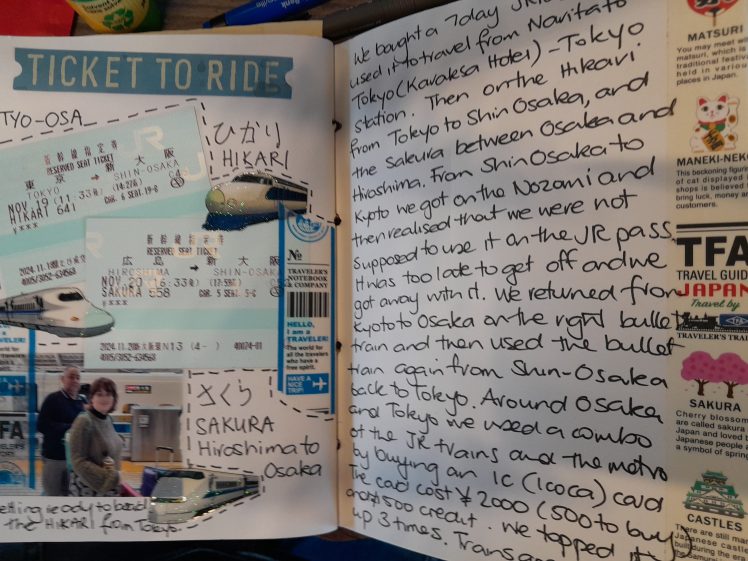 TICKET TO RIDE
TYO-OSA
ひかり
HIKARI
新幹線指定券
RESERVED SEAT TICKET
東京 → 新大阪
TOKYO → SHIN-OSAKA
NOV.19 (11:33 (14:27 C4
HIKARI 641 CAR. 6 SEAT.19-B
¥***
2024.11.19
4005
新幹線指定券
RESERVED SEAT TICKET
広島 → 新大阪
HIROSHIMA → SHIN-OSAKA
NOV.20 (16:33 (17:59
SAKURA 558 CAR. 5 SEAT.
¥***
2024.11.20 N13 (4- ) 40024-01
JR
№
TRAVELER'S
NOTEBOOK
& COMPANY
HELLO,
I am a
TRAVELER!
The world for
all the travelers
who have a
free spirit.
HAVE A
NICE
TRIP!
TFA
さくら
SAKURA
Hiroshima to
Osaka
Getting ready to board
the HIKARI from Tokyo.
We bought a 7day
used it to travel from Narita to
Tokyo - Tokyo
station. Then on the Hikari
from Tokyo to Shin Osaka, and
the Sakura between Osaka and
Hiroshima. From Shin Osaka to
Kyoto we got on the Nozomi and
then realised that we were not
supposed to use it on the JR pass.
It was too late to get off and we
got away with it. We returned from
Kyoto to Osaka on the right bullet
train and then used the bullet
train again from Shin-Osaka
back to Tokyo. Around Osaka
and Tokyo we used a combo
of the JR trains and the metro
by buying an IC (Icoca) card
The card cost ¥2000 (500 to buy
and 1500 credit. We topped it
up 3 times. Trains
MATSURI
You may meet
traditional
held in various
places in Japan.
MANEKI-NEKO
This beckoning figure
of cat displayed
shops is believed
bring luck, money
customers.
TFA
TRAVEL GUIDE
JAPAN
Travel by
TRAVELER'S TRAIN
SAKURA
Cherry blossom
are called sakura
Japan and loved
Japanese people
a symbol of spring
CASTLES
There are still many
Japanese castle
built during the era
the Samurai